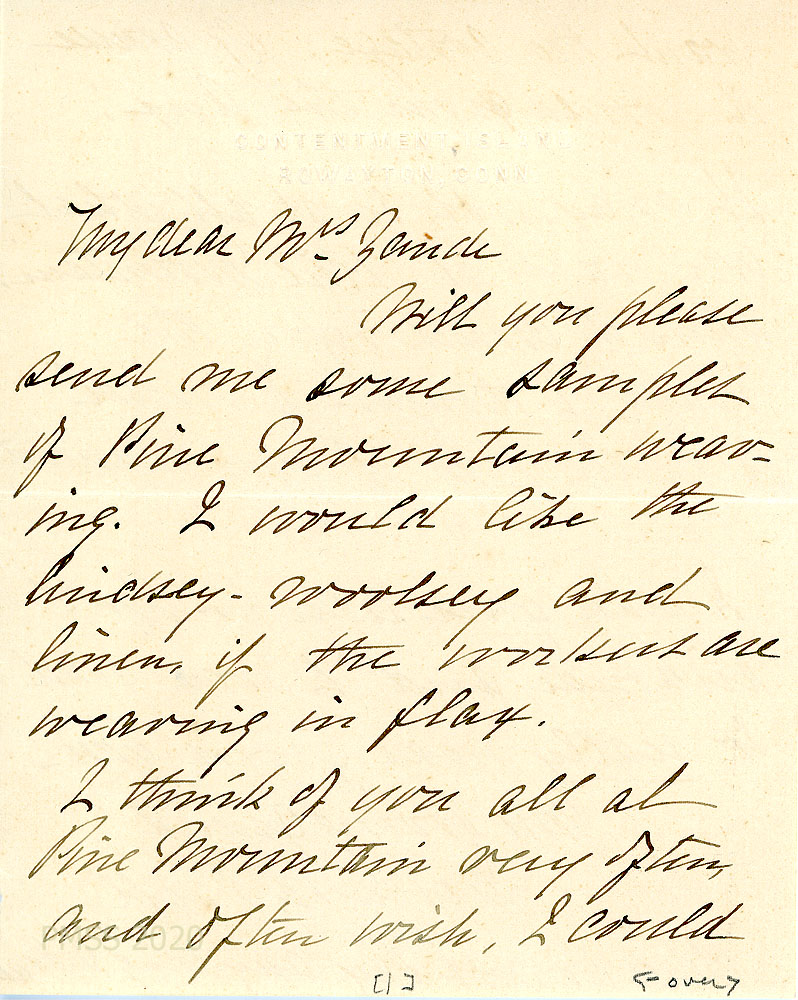 CONTENTMENT ISLAND
ROWAYTON, CONN
My dear Mrs Zande
Will you please
send me some samples
of Pine Mountain weav=
ing. I would like the
lindsey-woolsey and
linen, if the workers are
weaving in flax.
I think of you all at
Pine Mountain very often,
and often wish, I could
PMSS 2020
[1]
<over>